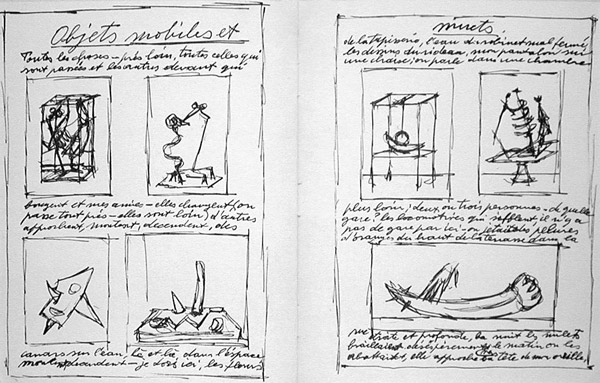 Objets mobiles et
Toutes les choses – près, loin, toutes celles qui
sont passées et les autres devant qui
bougent et mes amies – elles changent (on
passe tout près – elles sont loin) d'autres
approchent, montent, descendent, des
canards sur l'eau, là et là, dans l'espace
montent, descendent – je dors ici, les fleurs
muets
de la tapisserie, l'eau du robinet mal fermé,
les dessins du rideau, mon pantalon sur
une chaise, on parle dans une chambre
plus loin; deux ou trois personnes – de quelle
gare? les locomotives qui sifflent, il n'y a
pas de gare par ici – on jetait des pelures
d'orange du haut de la terrasse dans la
rue étroite et profonde, la nuit les mulets
braillaient désespérément, le matin on les
abattait, elle approche sa tête de mon oreille